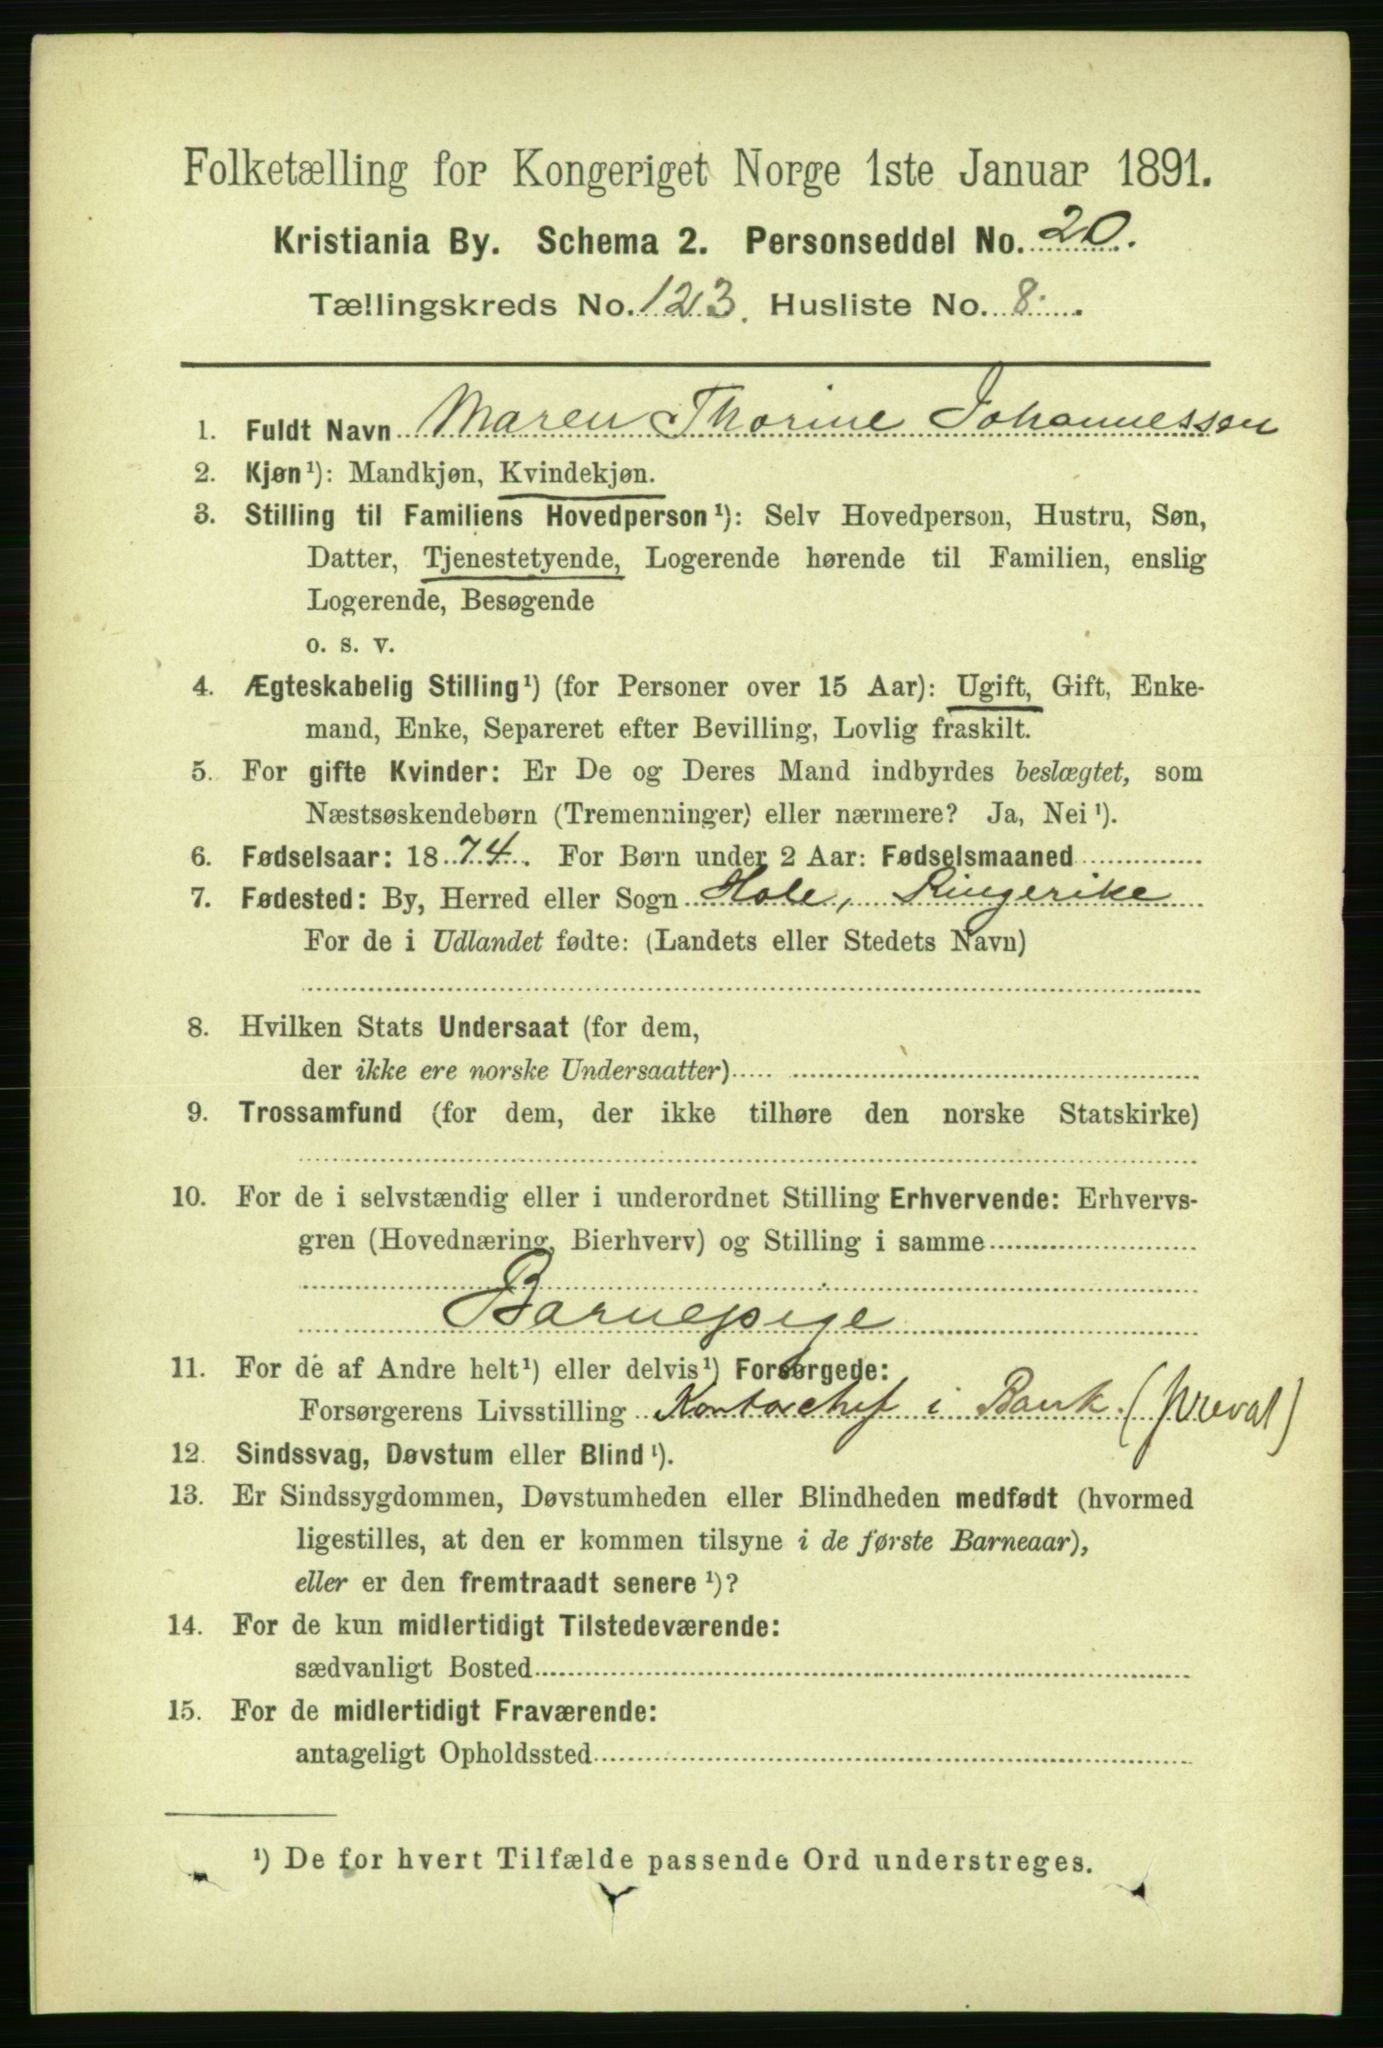 Folketælling for Kongeriget Norge 1ste Januar 1891.
Kristiania By. Schema 2. Personseddel No. 20.
Tællingskreds No. 123. Husliste No. 8.
1. Fuldt Navn Maren Thorine Johannessen
2. Kjøn¹): Mandkjøn, Kvindekjøn.
3. Stilling til Familiens Hovedperson¹): Selv Hovedperson, Hustru, Søn,
Datter, Tjenestetyende, Logerende hørende til Familien, enslig
Logerende, Besøgende
o. s. v.
4. Ægteskabelig Stilling¹) (for Personer over 15 Aar): Ugift, Gift, Enke-
mand, Enke, Separeret efter Bevilling, Lovlig fraskilt.
5. For gifte Kvinder: Er De og Deres Mand indbyrdes beslægtet, som
Næstsøskendebørn (Tremenninger) eller nærmere? Ja, Nei¹).
6. Fødselsaar: 1874. For Børn under 2 Aar: Fødselsmaaned
7. Fødested: By, Herred eller Sogn Hole, Ringerike
For de i Udlandet fødte: (Landets eller Stedets Navn)
8. Hvilken Stats Undersaat (for dem,
der ikke ere norske Undersaatter)
9. Trossamfund (for dem, der ikke tilhøre den norske Statskirke)
10. For de i selvstændig eller i underordnet Stilling Erhvervende: Erhvervs-
gren (Hovednæring, Bierhverv) og Stilling i samme
Barnepige
11. For de af Andre helt¹) eller delvis¹) Forsørgede:
Forsørgerens Livsstilling Kontorchef i Bank (privat)
12. Sindssvag, Døvstum eller Blind¹).
13. Er Sindssygdommen, Døvstumheden eller Blindheden medfødt (hvormed
ligestilles, at den er kommen tilsyne i de første Barneaar),
eller er den fremtraadt senere¹)?
14. For de kun midlertidigt Tilstedeværende:
sædvanligt Bosted
15. For de midlertidigt Fraværende:
antageligt Opholdssted
¹) De for hvert Tilfælde passende Ord understreges.